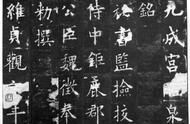 九成宮泉
銘
祕書監撿挍
侍中鉅鹿郡
公臣魏徵奉
勑撰
維貞觀年